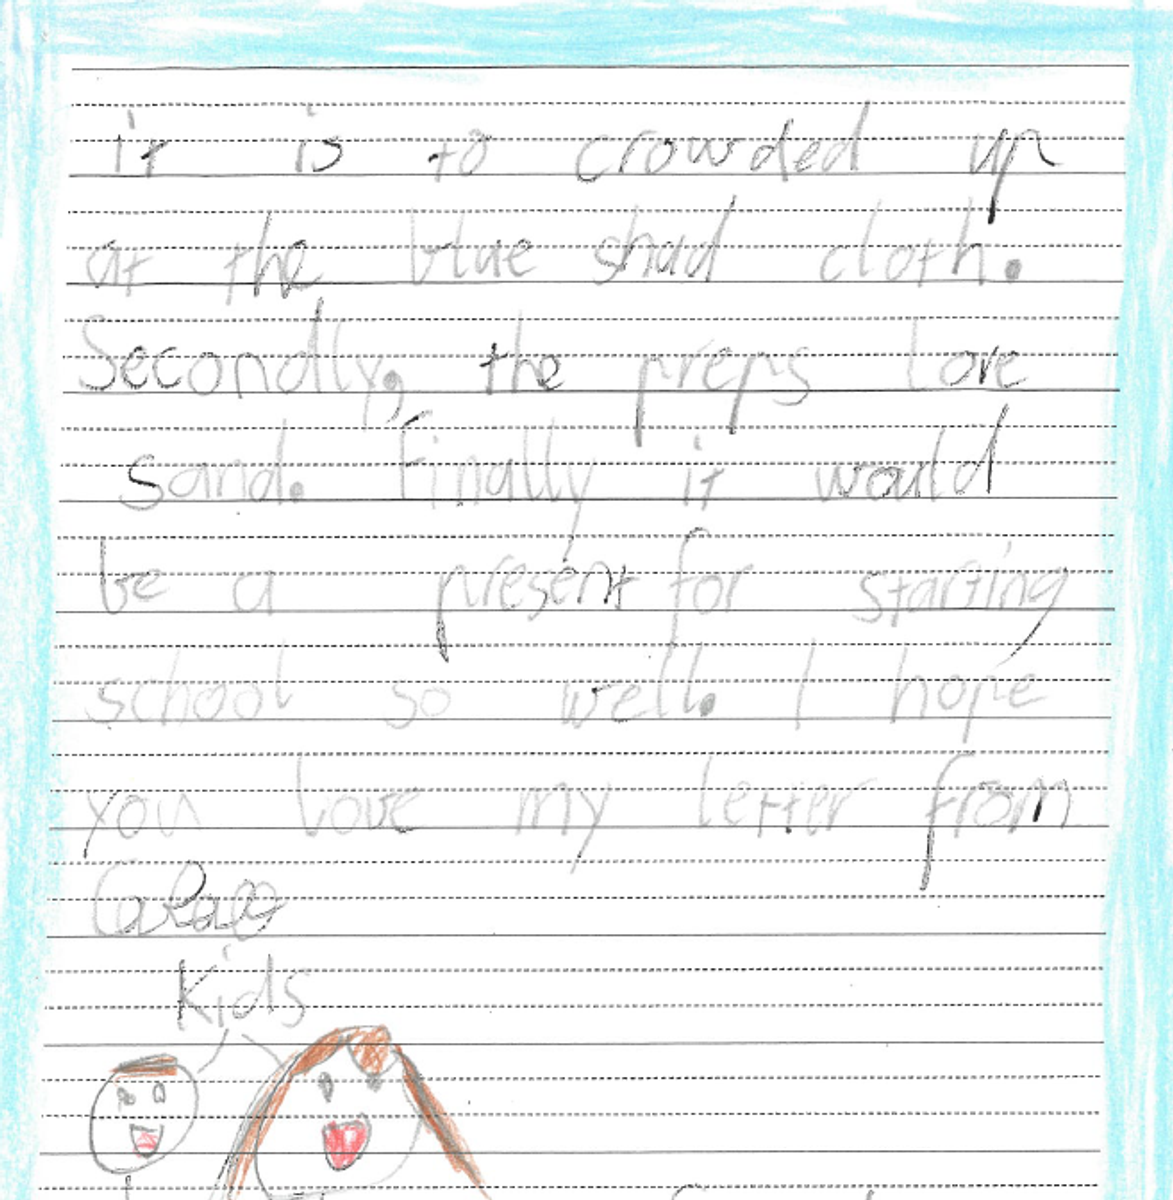 it is to crowded up
at the blue shad cloth.
Secondly, the preps love
sand. Finally it would
be a present for starting
school so well. I hope
you love my letter from
Grace
Kids